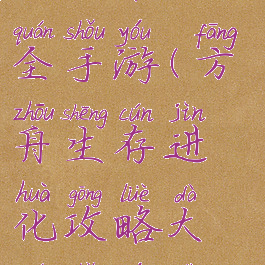 quán shǒu yóu fāng
全手游(方
zhōu shēng cún jìn
舟生存进
huà gōng lüè dà
化攻略大